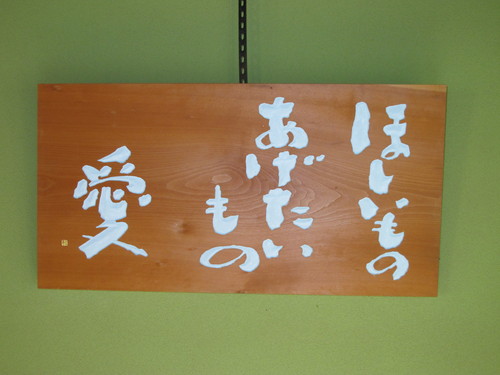 ほしいもの
あげたい
もの
愛